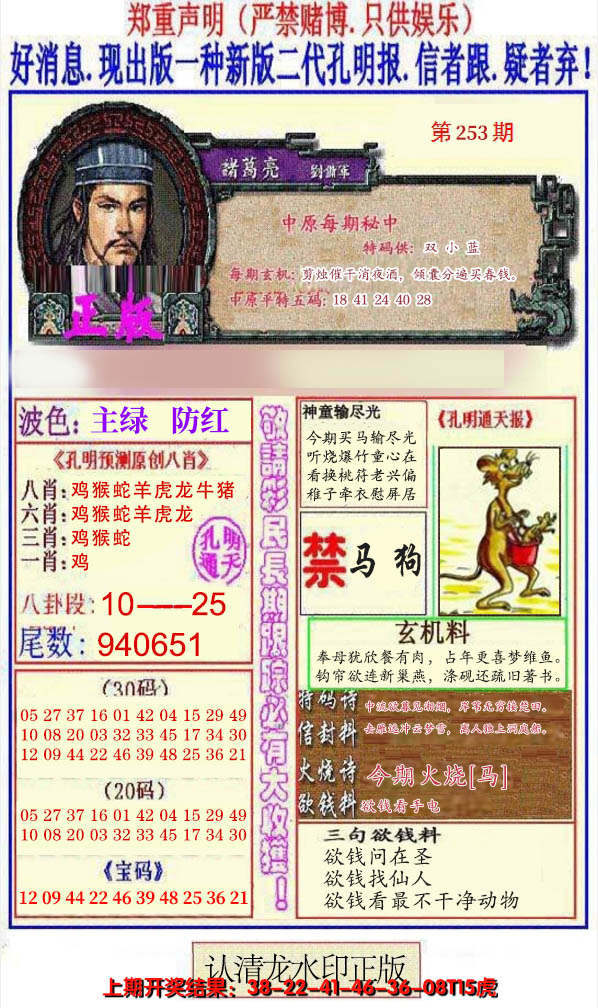 郑重声明（严禁赌博.只供娱乐）
好消息.现出版一种新版二代孔明报.信者跟.疑者弃！
第253期
諸葛亮 劉備軍
中原每期秘中
特码供：双 小 蓝
每期玄机：剪烛催干消夜酒，倾囊分遍买春钱。
中原平特五码：18 41 24 40 28
正版
波色：主绿 防红
《孔明预测原创八肖》
八肖：鸡猴蛇羊虎龙牛猪
六肖：鸡猴蛇羊虎龙
三肖：鸡猴蛇
一肖：鸡
孔明
通天
八卦段：10——25
尾数：940651
（30码）
05 27 37 16 01 42 04 15 29 49
10 08 20 03 32 33 45 17 34 30
12 09 44 22 46 39 48 25 36 21
（20码）
05 27 37 16 01 42 04 15 29 49
10 08 20 03 32 33 45 17 34 30
《宝码》
12 09 44 22 46 39 48 25 36 21
敬請彩民長期跟踪必有大收獲！
神童输尽光
今期买马输尽光
听烧爆竹童心在
看换桃符老兴偏
稚子牵衣慰屏居
《孔明通天报》
禁 马 狗
玄机料
奉母犹欣餐有肉，占年更喜梦维鱼。
钩帘欲连新巢燕，涤砚还疏旧著书。
特码诗 中流欲暮见湘烟，岸苇无穷接楚田。
信封料 去雁远冲云梦雪，离人独上洞庭船。
火烧诗 今期火烧[马]
欲钱料 欲钱看手电
三句欲钱料
欲钱问在圣
欲钱找仙人
欲钱看最不干净动物
认清龙水印正版
上期开奖结果：38-22-41-46-36-08T15虎